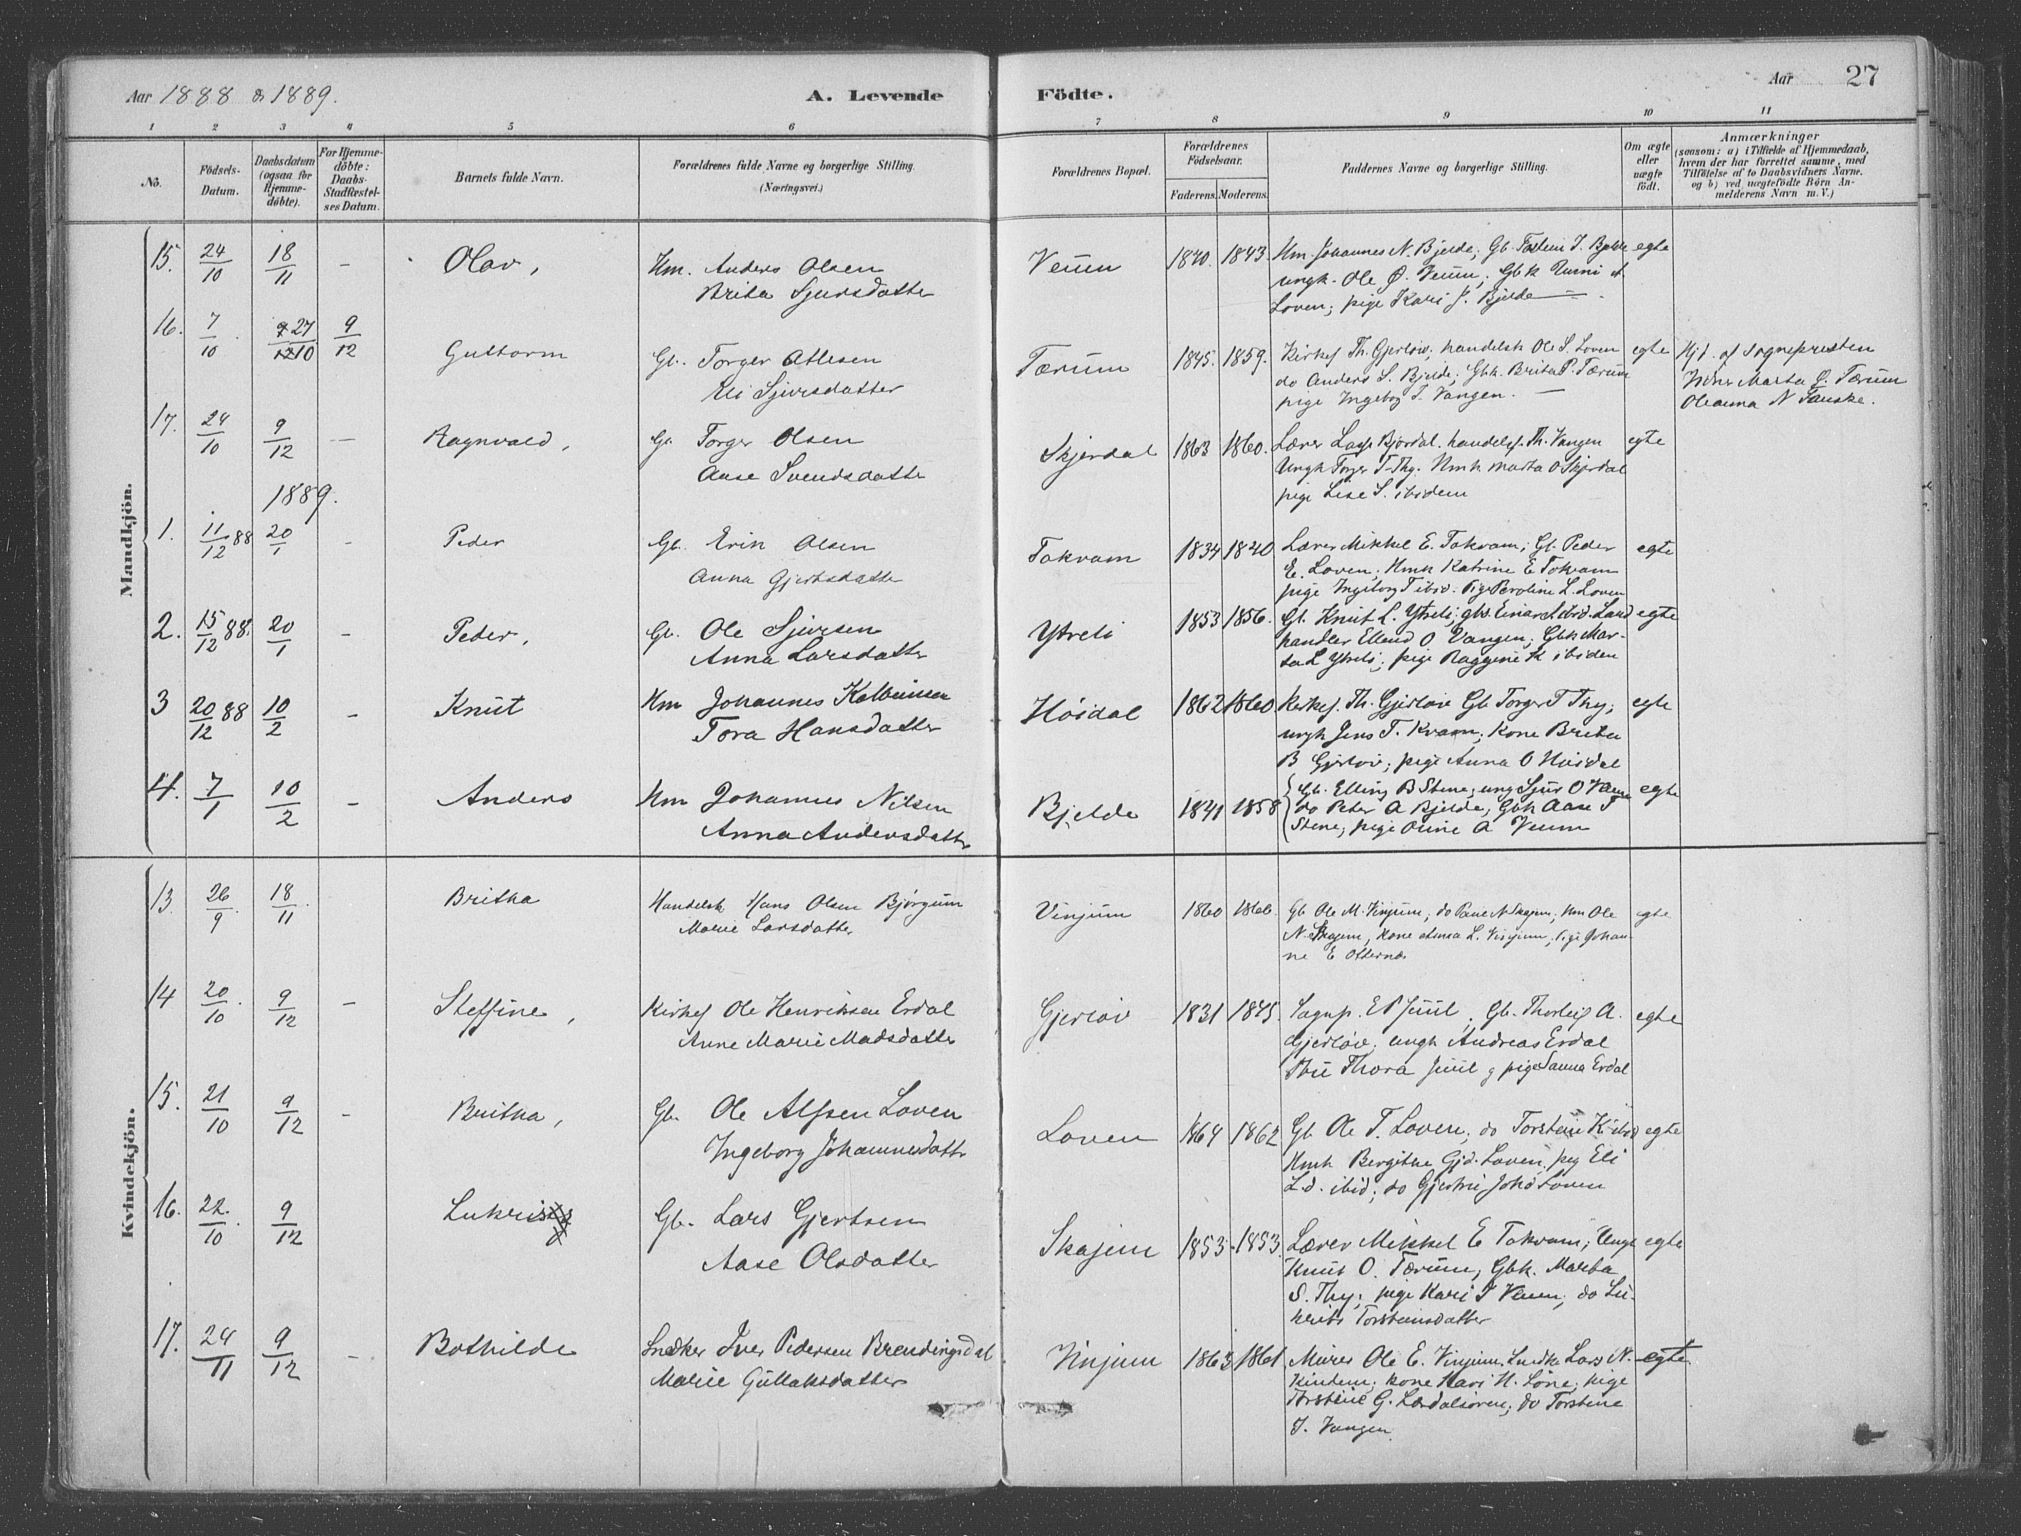 Aar 1888 & 1889.
A. Levende Födte.
Aar 27
1 2 3 4 5 6 7 8 9 10 11
No.
Födsels-Datum.
Daabsdatum (ogsaa for Hjemme-döbte).
For Hjemme-döbte: Daabs-Stadfæstel-ses Datum.
Barnets fulde Navn.
Forældrenes fulde Navne og borgerlige Stilling. (Næringsvei.)
Forældrenes Bopæl.
Forældrenes Födselsaar.
Faderens. Moderens.
Faddernes Navne og borgerlige Stilling.
Om ægte eller uægte födt.
Anmærkninger
(saasom: a) i Tilfælde af Hjemmedaab,
hvem der har forrettet samme, med
Tilföielse af to Daabsvidners Navne.
og b) ved uægtefödte Börn An-
melderens Navn m. V.)
Mandkjön.
15. 24/10 18/11 - Olav, Hm. Anders Olsen Veum 1840. 1843. Hm. Johannes N. Bjelde; Gb. Torstein J. Bjelde egte
Brita Sjursdatter ungk. Ole Ø. Veum; Gbk
Loven; pige Kari J. Bjelde
16. 7/10 27/10 9/12 Guttorm Gb. Torger Atlesen Tærum 1845. 1859. Kirkes. Th. Gjerløv; handelsb Ole S. Loven egte Hj. d. af Sognepresten
Eli Sjursdatter do Anders S. Bjelde; Gbk. Brita P. Tærum Marta O. Tærum
pige Ingeborg T. Vangen. Oleanna N
17. 24/10 9/12 - Ragnvald, Gb Torger Olsen Skjerdal 1863 1860. Lærer Lasse Bjørdal. handelsf. Th. Vangen egte
Aase Svendsdatter Ungk Torger T. Thy. Hmk Marta O Skjerdal
pige Lise S. ibidem
1889.
1. 11/12 88 20/1 - Peder Gb. Erik Olsen Tokvam 1834 1840 Lærer Mikkel E. Tokvam; Gb. Peder egte
Anna Gjertsdatter E. Loven; Hmk Katrine E Tokvam
pige Ingeborg T ibid. Pige Peroline L. Loven
2. 15/12 88. 20/1 - Peder, Gb. Ole Sjursen Ytreli 1853 1856. Gb. Knut L. Ytreli; gbs. Einar S ibid. Land egte
Anna Larsdatter handler Ellend O Vangen; Gbk Mar-
ta L Ytreli; pige Raggene K ibiden
3 20/12 88 10/2 - Knut Hm Johannes Kolbeinsen Høidal 1862 1860 Kirkes. Th. Gjerløv Gb Torger T Thy; egte
Tora Hansdatter ungk Jens T. Kvam; Kone Brita
B Gjerløv; pige Anna O Høidal
4. 7/1 10/2 - Anders Hm Johannes Nilsen Bjelde 1841 1858 Gb. Elling B Stene; ung Sjur O Veum egte
Anna Andersdatter do Peter A Bjelde; Gbk Aase T
Stene; pige A Veum
Kvindekjön.
13. 26/9 18/11 Britha Handelsk Hans Olsen Bjørgum Vinjum 1860 1866. Gb Ole M. Vinjum; do N. Skajem; Hm Ole egte
Marie Larsdatter N. Skajem; Kone L. Vinjum; Pige Johan-
ne E Otternæs
14 20/10. 9/12 - Steffine, Kirkes Ole Henriksen Erdal Gjerløv 1831 1845. Sognp. E P Juul, Gb. Thorleif A. egte
Anne Marie Madsdatter Gjerløv; ungk Andreas Erdal
Thora Juul & pige Sanna Erdal
15. 21/10 9/12 - Britha, Gb. Ole Alfsen Loven Loven 1864 1862 Gb Ole T. Loven; do Torstein K ibid egte
Ingeborg Johannesdatt Hmk Bergithe Gjd. Loven pig Eli
L.d. ibid; do Gjertrui Johd Loven
16. 22/10. 9/12 Gb. Lars Gjertsen Skajem 1853 1853. Lærer Mikkel E Tokvam; Ungk egte
Aase Olsdatter Knut O. Tærum; Gbk. Marta
S. Thy; pige Kari J Veum; do Lu-
krits Torsteinsdatter
17. 24/11 9/12 - Bothilde Snedker Iver Pedersen Brendingsdal Vinjum 1863 1861. Murer Ole E. Vinjum. Snedke Lars N. egte
Marie Gullaksdatter Kindem; kone Kari H. Lone; pige
Torstene G. Lærdalsøren; do Torstene
J. Vangen